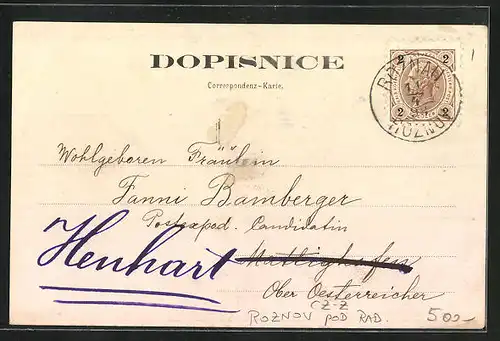 DOPISNICE
Correspondenz-Karte.
2 2
ROŽNAU
ROŽNOV
2 2
Wohlgeboren Fräulein
Fanni Bamberger
Postexped. Candidatin
Henhart Mattighofen
Ober Oesterreicher
CZ-Z
ROZNOV POD RAD. 500-